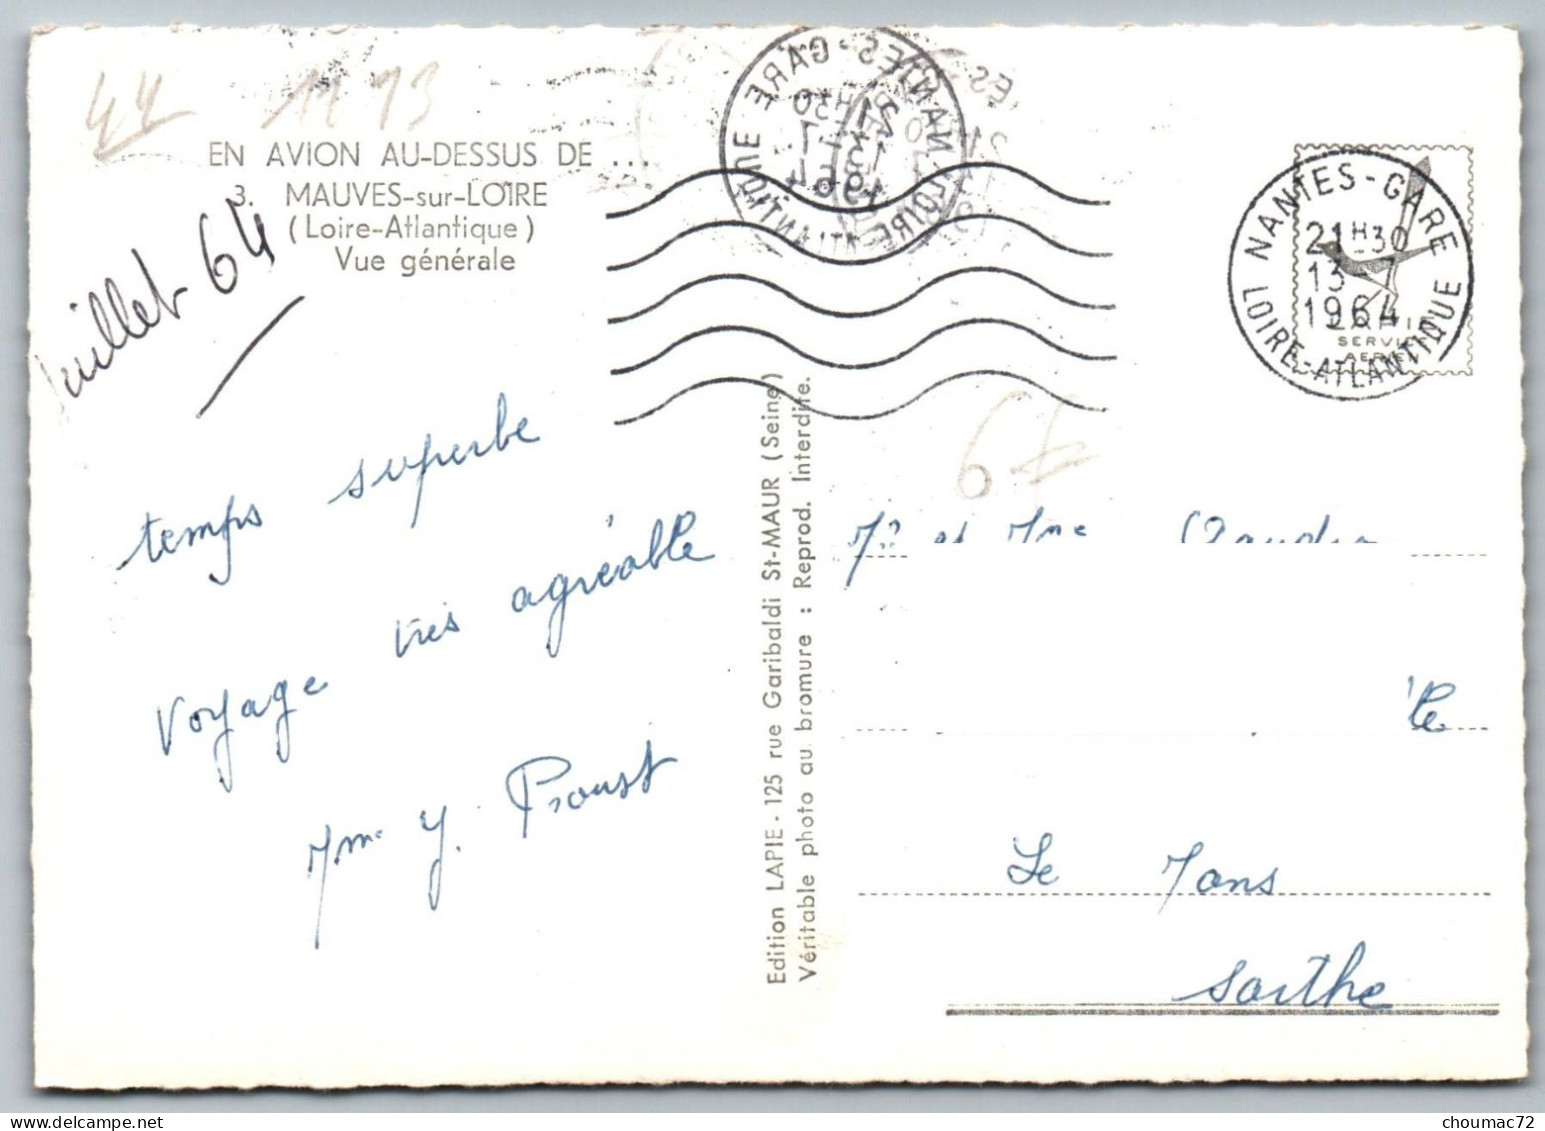 44 1173
EN AVION AU-DESSUS DE ...
3. MAUVES-sur-LOIRE
(Loire-Atlantique)
Vue générale
Juillet 64
temps superbe
voyage très agréable
Mme Y. Proust
Edition LAPIE - 125 rue Garibaldi St-MAUR (Seine)
Véritable photo au bromure : Reprod. Interdite.
NANTES-GARE
21H30
13-7
1964
LOIRE-ATLANTIQUE
NANTES-GARE
21H30
13-7
1964
LOIRE-ATLANTIQUE
LAPIE
SERVICE
AERIEN
6f
Mr et Mme
Le Mans
Sarthe
choumac72